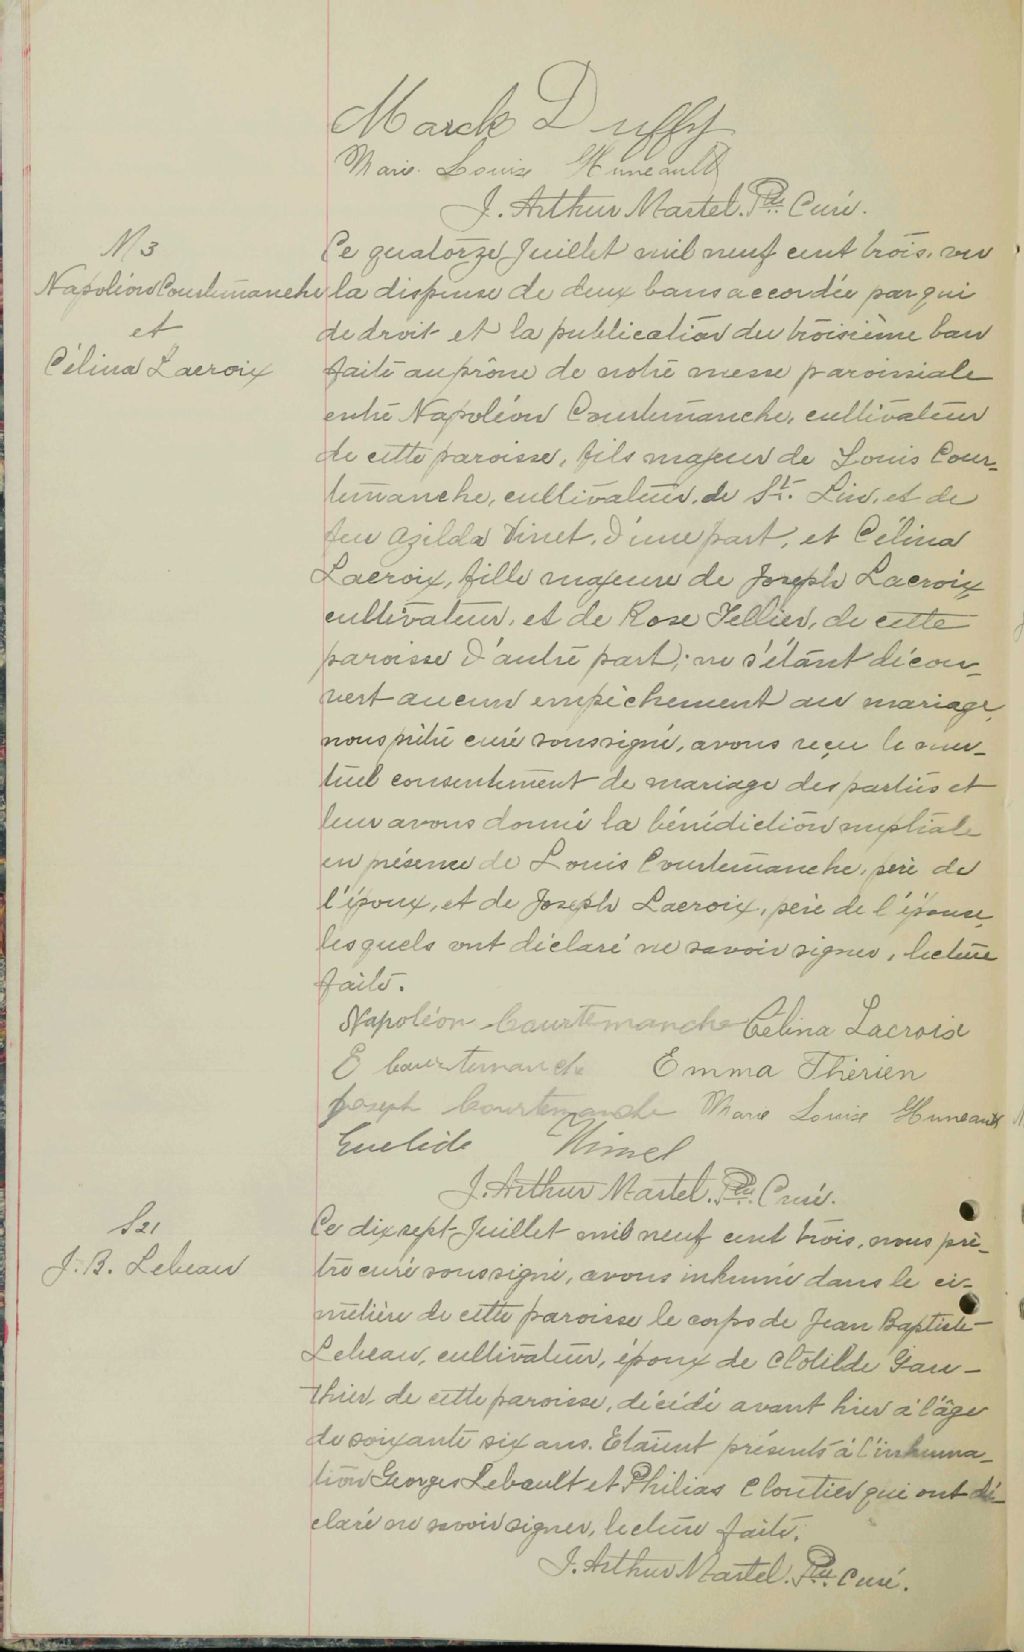 Marck Duffy
Marie Louise Huneault
J. Arthur Martel. Ptre Curé.
M 3
Napoléon Courtemanche
et
Célina Lacroix
Ce quatorze Juillet mil neuf cent trois, vu
la dispense de deux bans accordée par qui
de droit et la publication du troisième ban
faite au prône de notre messe paroissiale
entre Napoléon Courtemanche, cultivateur
de cette paroisse, fils majeur de Louis Cour-
temanche, cultivateur, de St. Lin, et de
feu Azilda Vinet, d'une part, et Célina
Lacroix, fille majeure de Joseph Lacroix,
cultivateur, et de Rose Tellier, de cette
paroisse d'autre part; ne s'étant décou-
vert aucun empêchement au mariage,
nous prêtre curé soussigné, avons reçu le mu-
tuel consentement de mariage des parties et
leur avons donné la bénédiction nuptiale
en présence de Louis Courtemanche, père de
l'époux, et de Joseph Lacroix, père de l'épouse,
lesquels ont déclaré ne savoir signer, lecture
faite.
Napoléon Courtemanche Célina Lacroix
E Courtemanche Emma Thérien
Joseph Courtemanche Marie Louise Huneault
Euclide
J. Arthur Martel. Ptre. Curé.
S 21
J. B. Lebeau
Ce dix sept Juillet mil neuf cent trois, nous prê-
tre curé soussigné, avons inhumé dans le ci-
metière de cette paroisse le corps de Jean Baptiste
Lebeau, cultivateur, époux de Clotilde Gau-
thier, de cette paroisse, décédé avant hier à l'âge
de soixante six ans. Etaient présents à l'inhuma-
tion Georges Lebault et Philias Cloutier qui ont dé-
claré ne savoir signer, lecture faite.
J. Arthur Martel. Ptre. Curé.